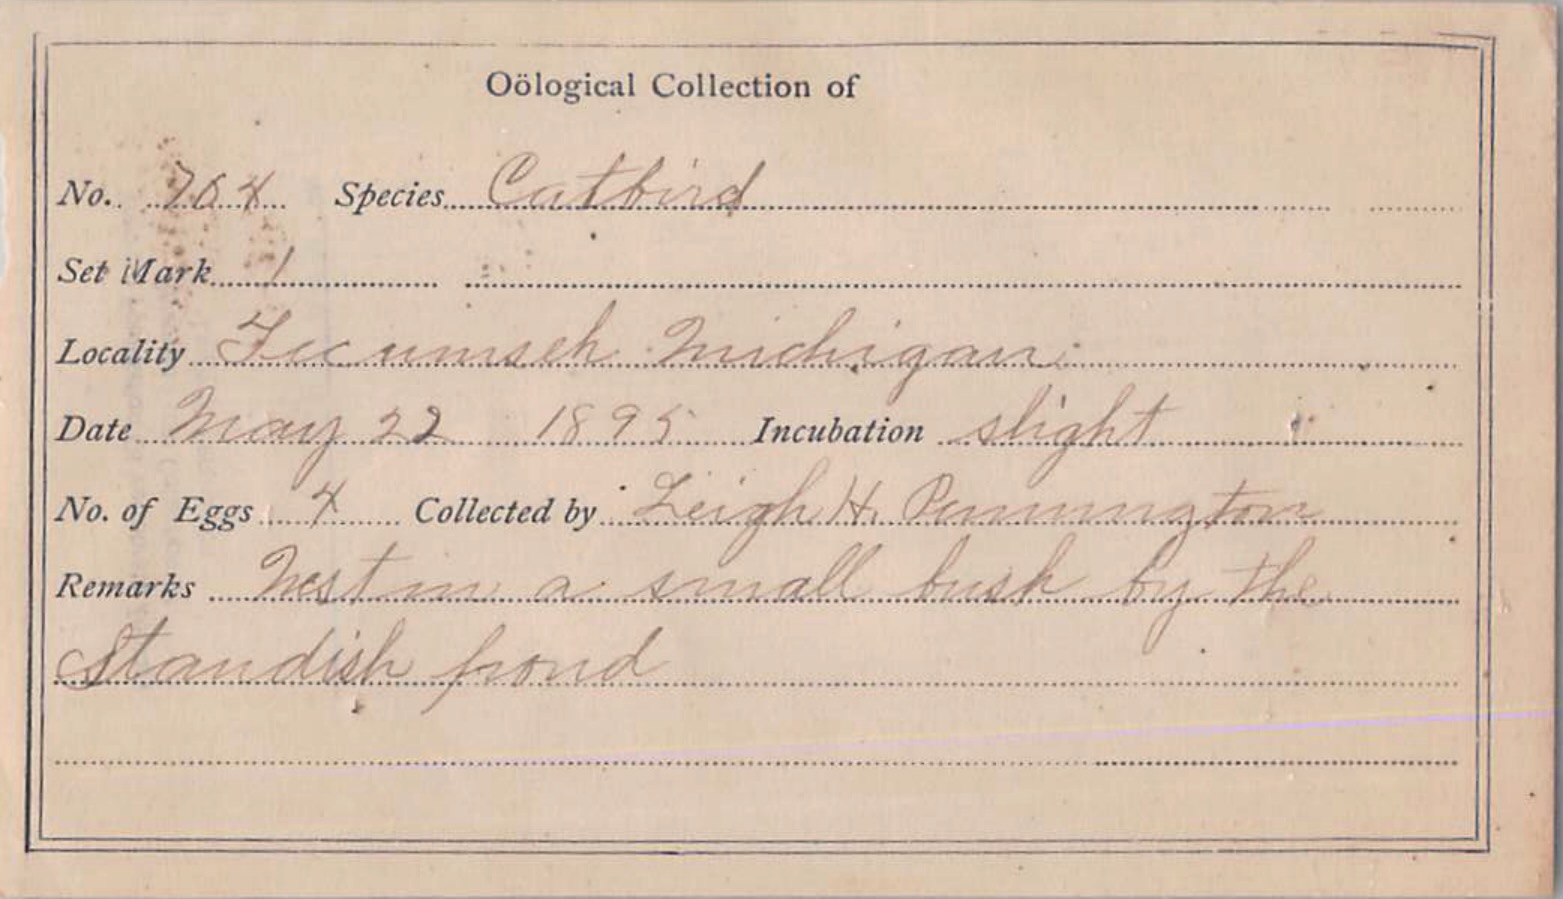 Oölogical Collection of
No. 704 Species Catbird
Set Mark 1
Locality Tecumseh Michigan
Date May 22 1895 Incubation slight
No. of Eggs 4 Collected by Leigh H. Pennington
Remarks Nest in a small bush by the
Standish pond